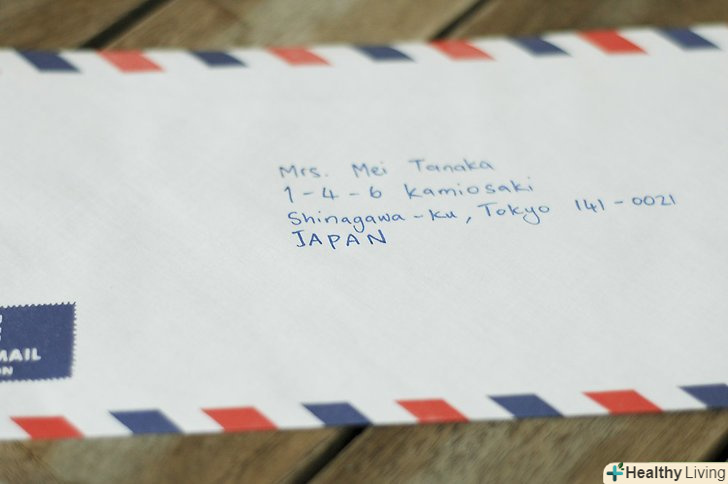 Mrs. Mei Tanaka
1-4-6 Kamiosaki
Shinagawa-ku, Tokyo 141-0021
JAPAN
MAIL
Healthy Living